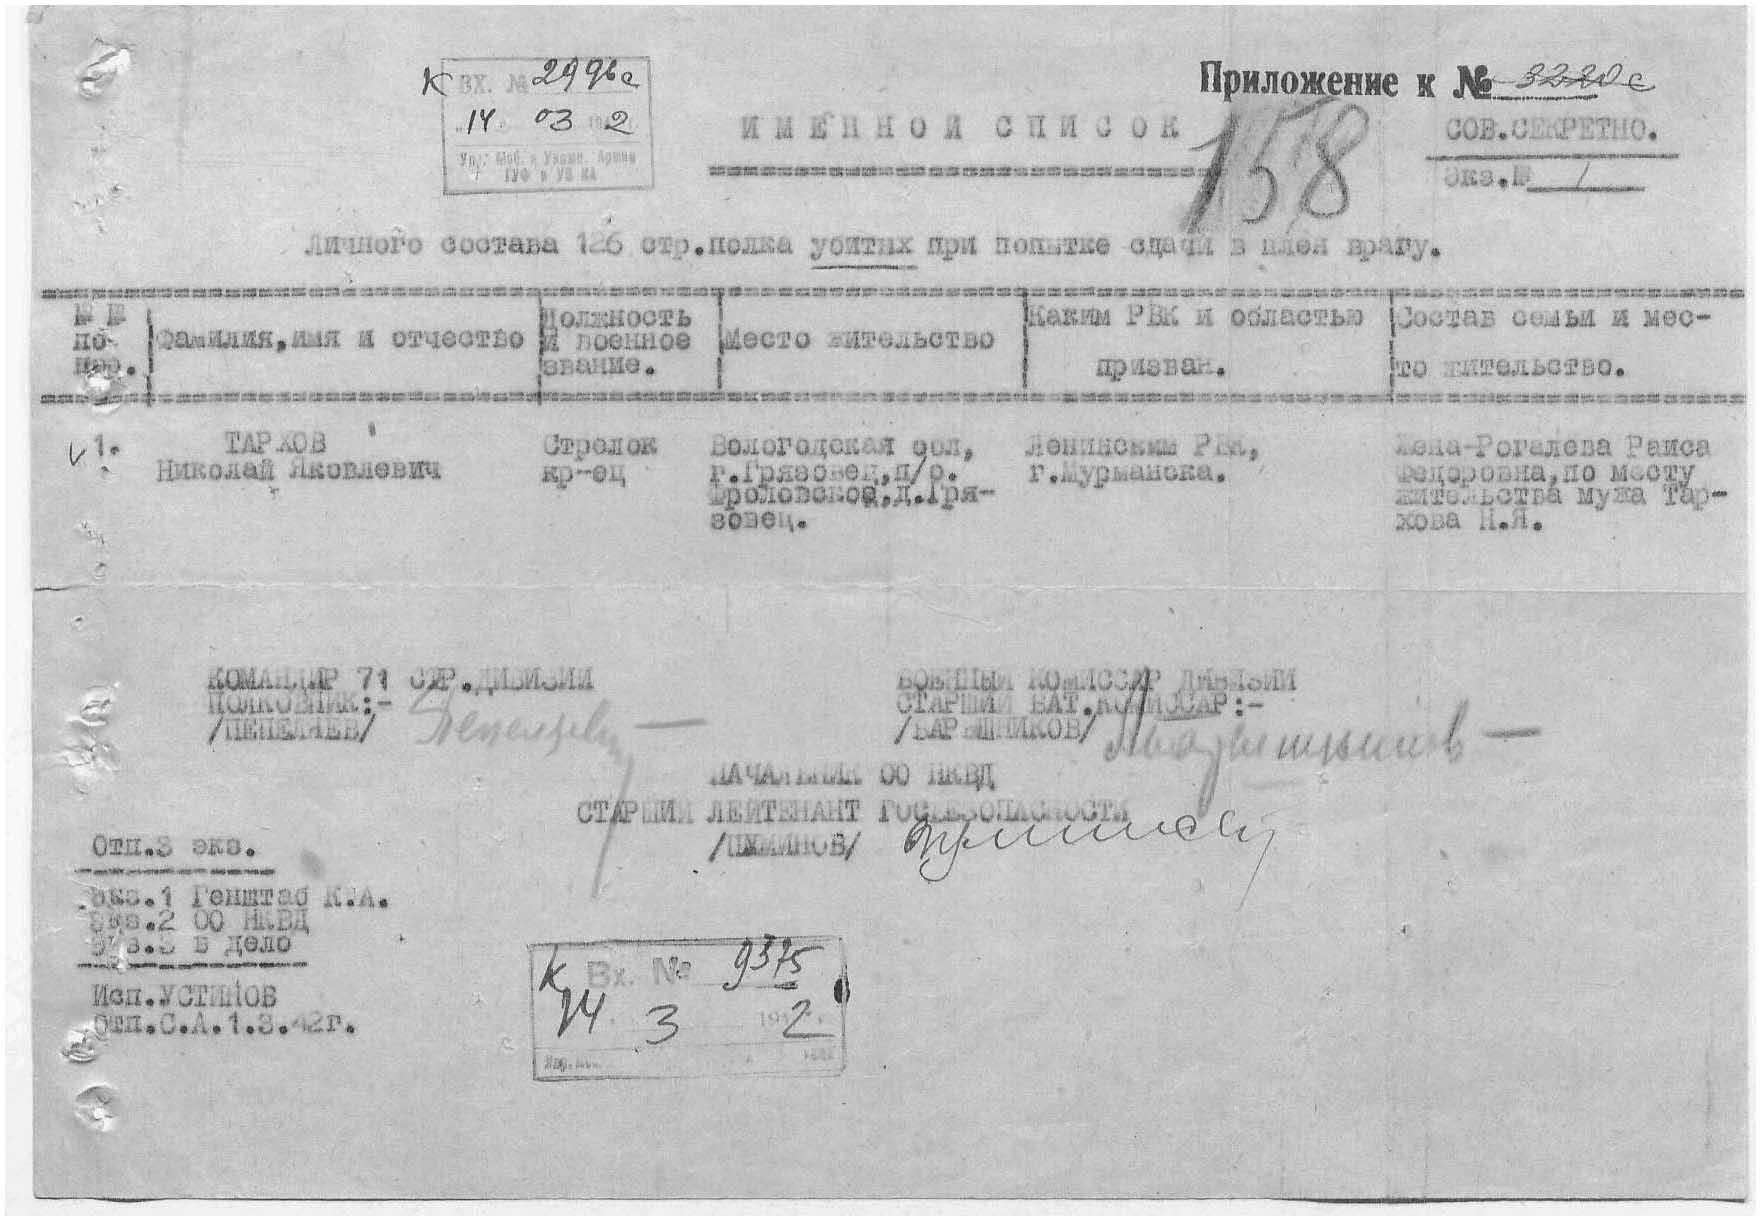 К ВХ. № 2996с
14 03 2
Упр. Моб. и Укомп. Армии
ГУФ и УВ КА
Приложение к № 3220с
СОВ.СЕКРЕТНО.
Экз.№ 1
ИМЕННОЙ СПИСОК
158
Личного состава 126 стр.полка убитых при попытке сдачи в плен врагу.
№ №
по
пор.
Фамилия,имя и отчество
Должность
и военное
звание.
Место жительство
Каким РВК и областью
призван.
Состав семьи и мес-
то жительство.
1.
ТАРХОВ
Николай Яковлевич
Стрелок
кр-ец
Вологодская обл,
г.Грязовец,п/о.
Фроловское,д.Гря-
зовец.
Ленинским РВК,
г.Мурманска.
Жена-Рогалева Раиса
Федоровна,по месту
жительства мужа Тар-
хова Н.Я.
КОМАНДИР 71 СТР.ДИВИЗИИ
ПОЛКОВНИК:-
/ПЕПЕЛЯЕВ/
ВОЕННЫЙ КОМИССАР ДИВИЗИИ
СТАРШИЙ БАТ.КОМИССАР:-
/БАРЫШНИКОВ/
НАЧАЛЬНИК ОО НКВД
СТАРШИЙ ЛЕЙТЕНАНТ ГОСБЕЗОПАСНОСТИ
/ШУМИЛОВ/
Отп.3 экз.
экз.1 Генштаб К.А.
экз.2 ОО НКВД
экз.3 в дело
Исп.УСТИНОВ
Отп.С.А.1.3.42г.
К Вх. № 9375
14. 3 1942